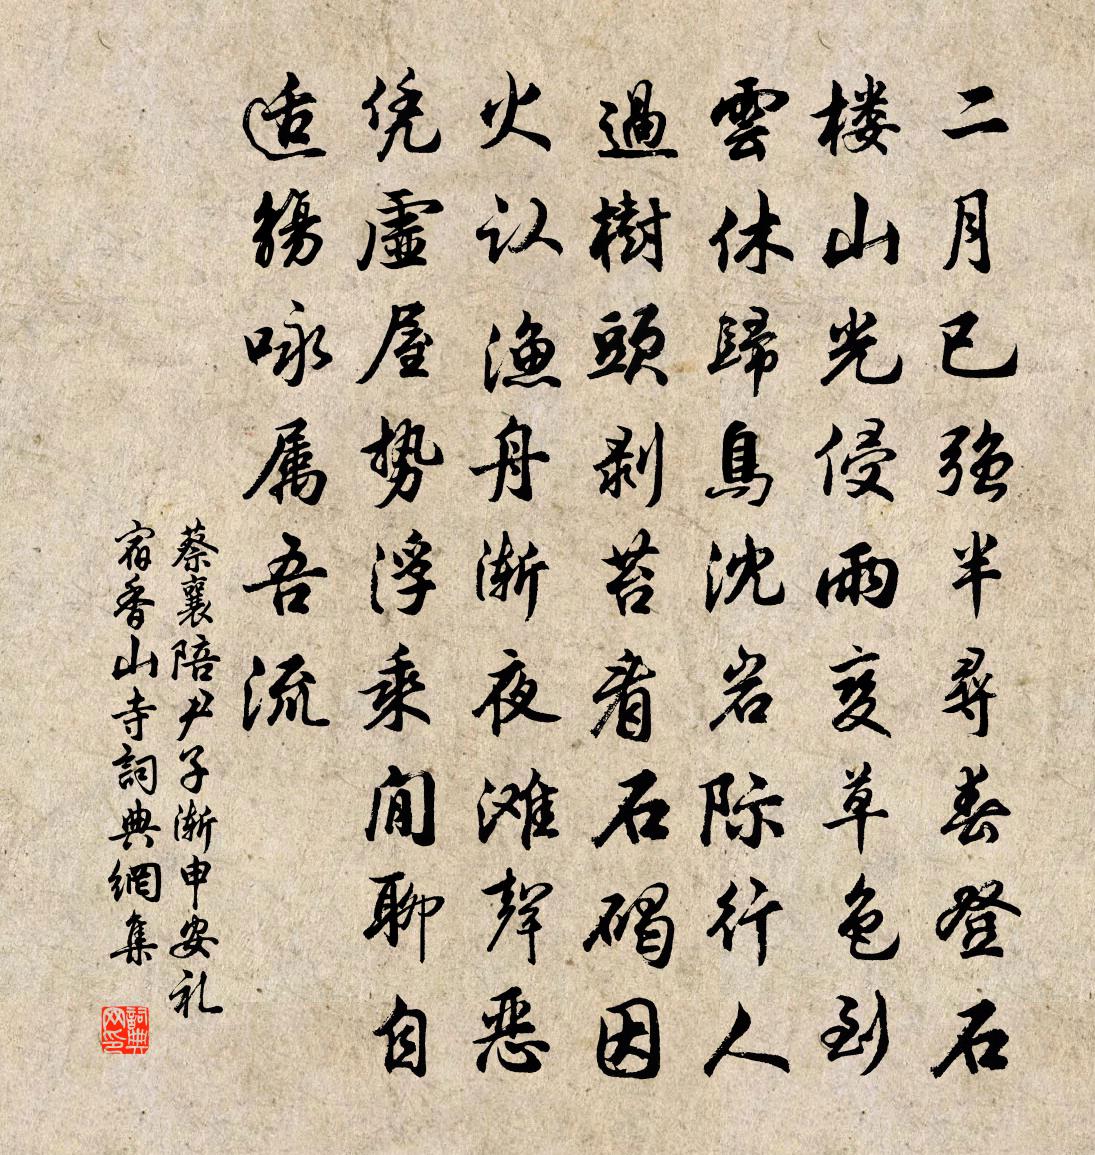 二月已強半尋春登石
楼山光侵雨变草色到
雲休歸鳥沈岩际行人
過樹頭剥苔看石碣因
火认漁舟渐夜滩声恶
凭虚屋势浮乘闲聊自
适觞咏属吾流
蔡襄陪尹子渐申安礼
宿香山寺詞典網集
詞典
网印